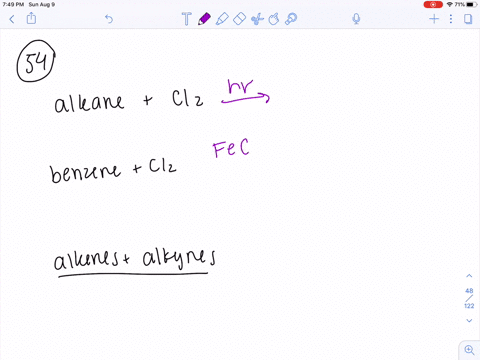 7:49 PM Sun Aug 9
71%
54
alkane + Cl2 hν
benzene + Cl2 FeC
alkenes + alkynes
48
/
122